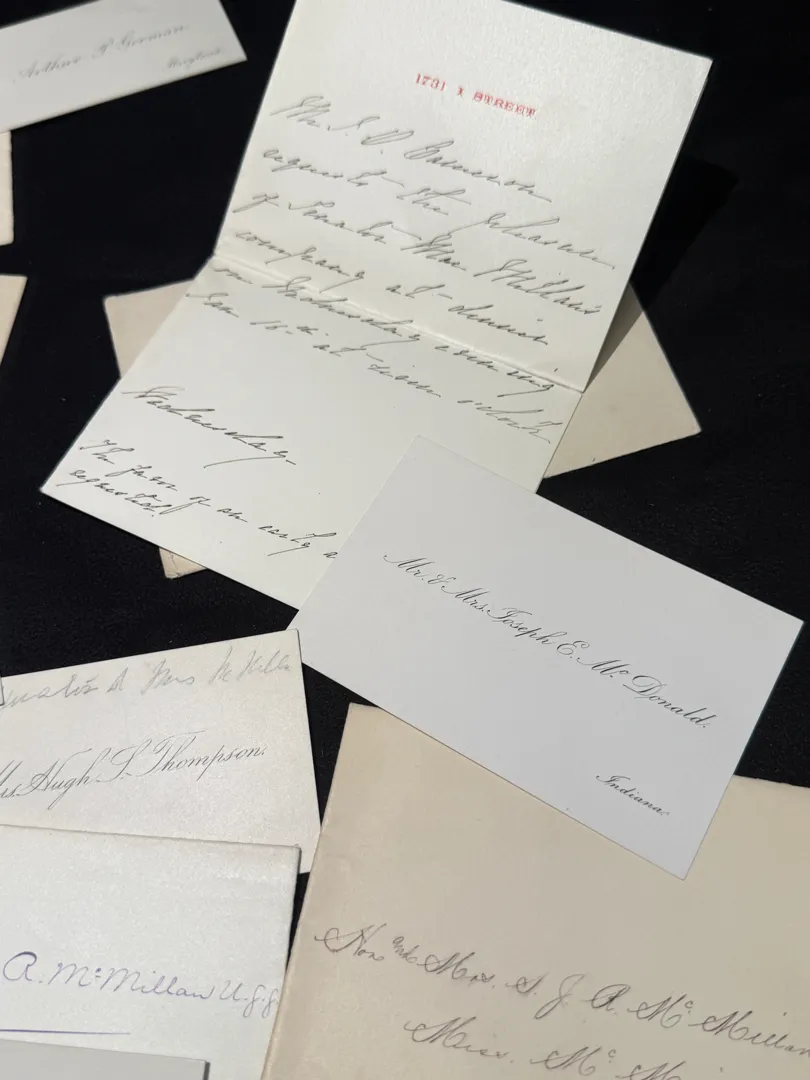 Arthur P. Gorman.
Maryland.
1731 I STREET
Mr J. D. Cameron
requests the pleasure
of Senator Mac Millan's
company at dinner
on Wednesday evening
Jan 16th at seven o'clock
Wednesday
The favor of an early a
requested.
Mr. & Mrs. Joseph E. McDonald.
Indiana.
& Mrs McMilla
Mrs. Hugh S. Thompson.
A. McMillan U.S.S
Hon and Mrs. S. J. R. McMillan
Miss. Mc Mi